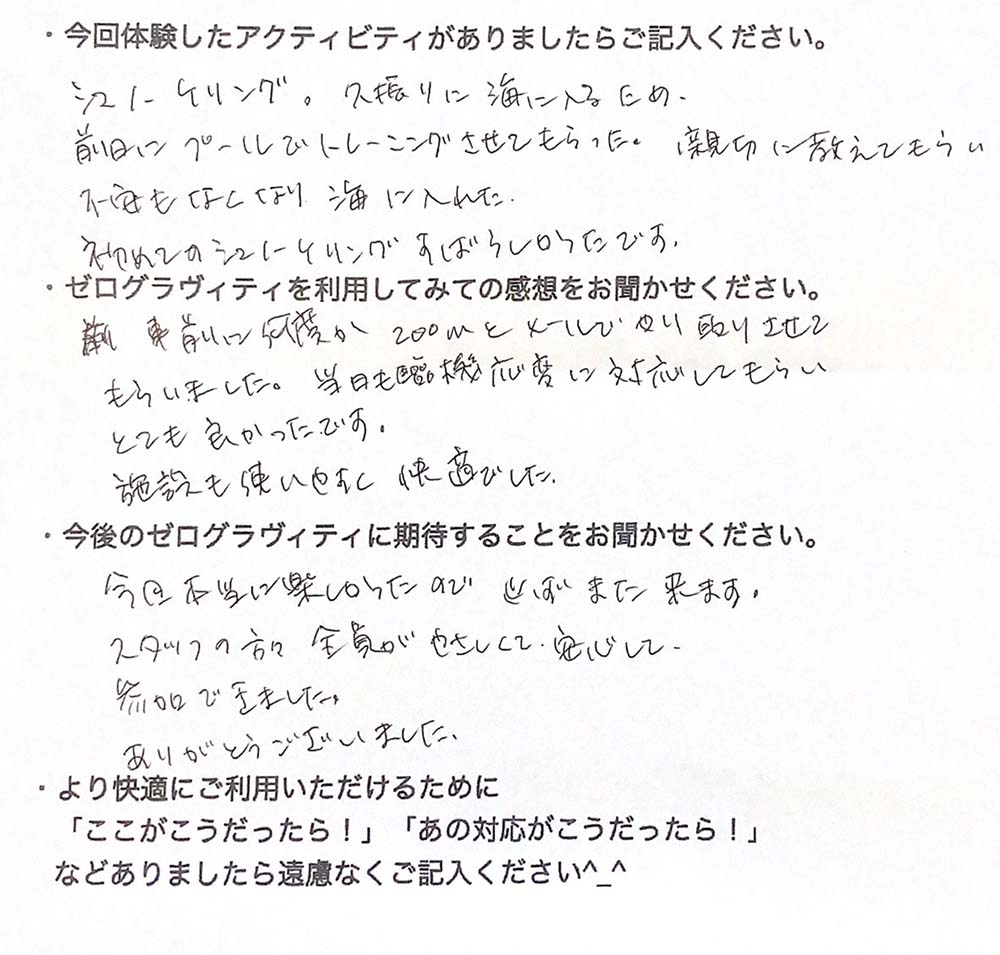 ・今回体験したアクティビティがありましたらご記入ください。
シュノーケリング。久振りに海に入るため、
前日にプールでトレーニングさせてもらった。親切に教えてもらい
不安もなくなり海に入れた。
初めてのシュノーケリングすばらしかったです。
・ゼログラヴィティを利用してみての感想をお聞かせください。
事前に何度か zoomとメールでやり取りさせて
もらいました。当日も臨機応変に対応してもらい
とても良かったです。
施設も使いやすく快適でした。
・今後のゼログラヴィティに期待することをお聞かせください。
今回本当に楽しかったので またます。
スタッフの方々全員がやさしくて、安心して
参加できました。
ありがとうございました。
・より快適にご利用いただけるために
「ここがこうだったら！」「あの対応がこうだったら！」
などありましたら遠慮なくご記入ください^_^